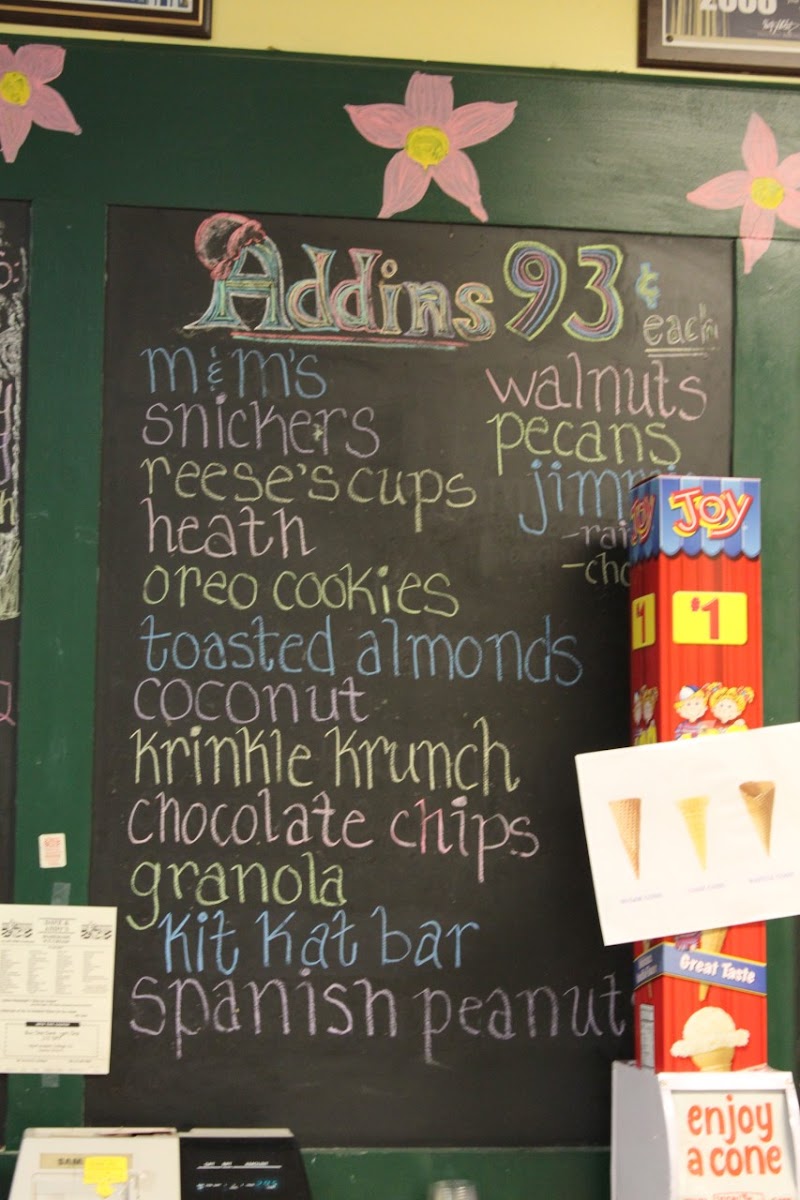 Addins 93¢
each
m&m's
snickers
reese's cups
heath
oreo cookies
toasted almonds
coconut
krinkle krunch
chocolate chips
granola
kit kat bar
spanish peanut
walnuts
pecans
JOY
$1
Great Taste
enjoy
a cone